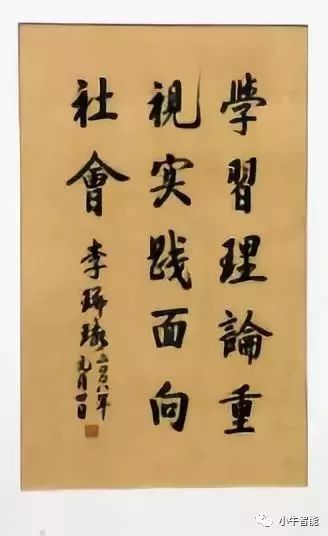 學習理論重
視实践面向
社會
李瑞環二〇〇八年
元月四日
小牛智能